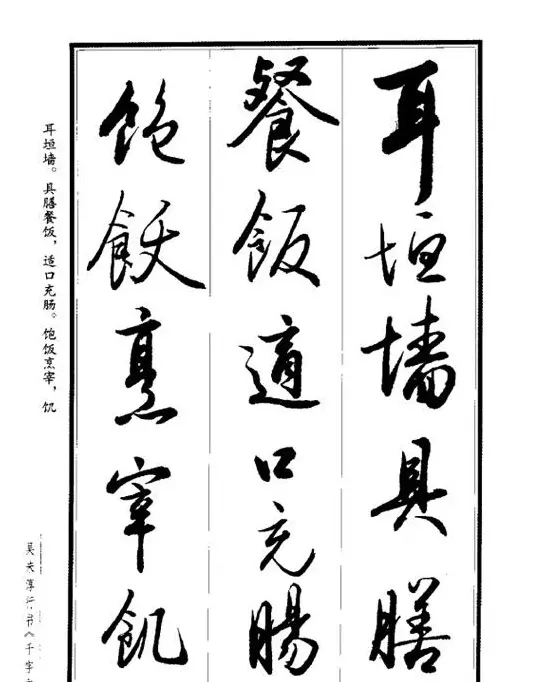 耳垣墙具膳
餐飯適口充腸
飽飫烹宰飢
耳垣墙。具膳餐饭，适口充肠。饱饭烹宰，饥
吴未淳行书《千字